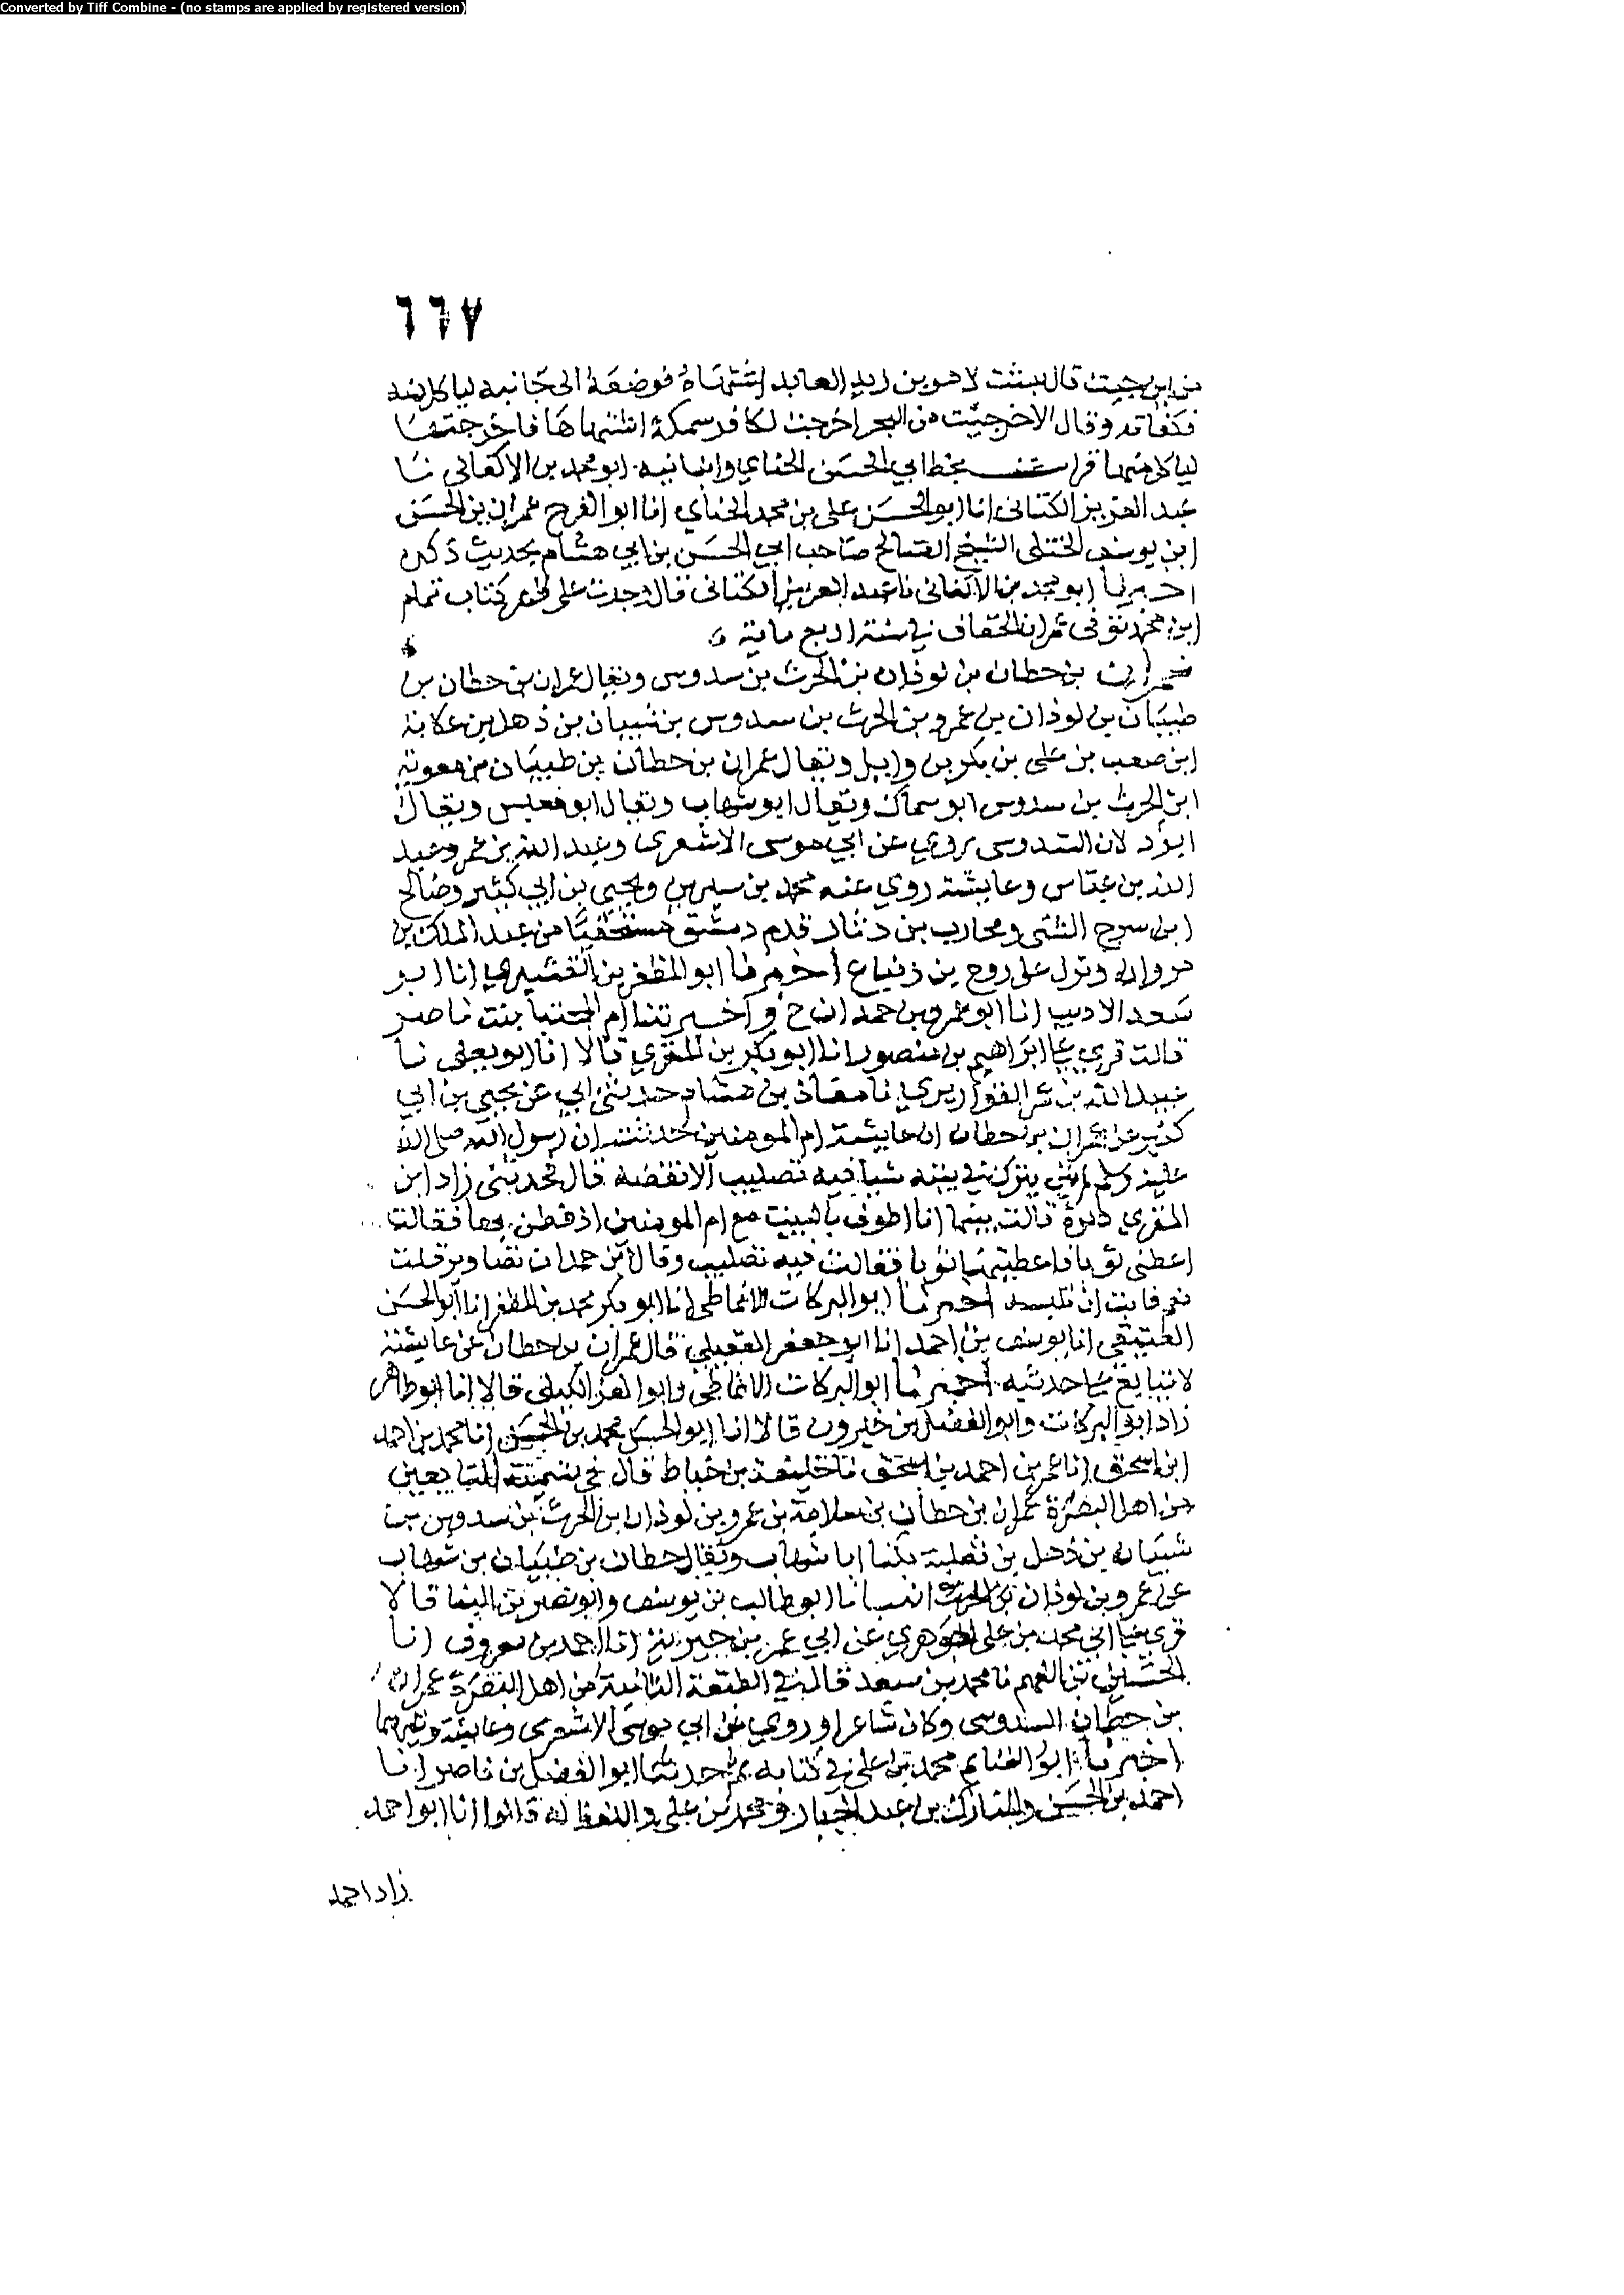 Converted by Tiff Combine - (no stamps are applied by registered version)
٦٦٧
من اين جيت قال بعثت لاهو بن زيد العابد اشتهاه فوضعه الى جانبه لياكل منه
وقال الاخر جيت من البحر اخرجت لكافر سمكة اشتهاها فاخرجتها
لياكل منها قرات بخط ابي الحسن الحناي وانبانيه ابو محمد بن الاكفاني نا
عبد العزيز الكتاني انا ابو الحسن علي بن محمد الحناي انا ابو الفرج عمران بن الحسن
ابن يوسف الختلي الشيخ الصالح صاحب ابي الحسن بن ابي هشام بحديث ذكره
اخبرنا ابو محمد بن الاكفاني نا عبد العزيز الكتاني قال وجدت على ظهر كتاب تمام
ابن محمد توفي عمران الخفاف في سنة اربع ماية
عمران بن حطان بن لوذان بن الحرث بن سدوس ويقال عمران بن حطان بن
ظبيان بن لوذان بن عمرو بن الحرث بن سدوس بن شيبان بن ذهل بن عكابة
ابن صعب بن على بن بكر بن وايل ويقال عمران بن حطان بن ظبيان بن معوية
ابن الحرث بن سدوس ابو سماك ويقال ابو شهاب ويقال ابو معيس ويقال
ابو دلان السدوسي روي عن ابي موسى الاشعري وعبد الله بن عمر وعبد
الله بن عباس وعايشة روي عنه محمد بن سيرين ويحيى بن ابي كثير وصالح
ابن سرج الشني ومحارب بن دثار قدم دمشق مستخفيا من عبد الملك بن
مروان ونزل على روح بن زنباع اخبرنا ابو المظفر بن القشيري انا ابو
سعد الاديب انا ابو عمرو بن حمدان ح واخبرتنا ام المجتبا بنت ناصر
قالت قري على ابراهيم بن منصور انا ابو بكر بن المقري قالا انا ابو يعلى نا
عبيد الله بن عمر القواريري نا معاذ بن هشام حدثني ابي عن يحيى بن ابي
كثير عن عمران بن حطان ان عايشة ام المومنين حدثته ان رسول الله صلى الله
عليه وسلم لم يكن يترك في بيته شيا فيه تصليب الا نقضه قال فحدثتني زاد ابن
المقري دفرة قالت بينما انا اطوف بالبيت مع ام المومنين اذ فقالت
اعطني ثوبا فاعطيتها ثوبا فقالت فيه تصليب وقال ابن حمدان تصاوير قلت
نعم فابت ان تلبسه اخبرنا ابو البركات الانماطي انا ابو بكر محمد بن المظفر انا ابو الحسن
العتيقي انا يوسف بن احمد انا ابو جعفر العقيلي قال عمران بن حطان عن عايشة
لا يتابع على حديثه اخبرنا ابو البركات الانماطي وابو العز الكيلي قالا انا ابو طاهر
زاد ابو البركات وابو الفضل بن خيرون قالا انا ابو الحسين محمد بن الحسن انا محمد بن احمد
ابن اسحق انا عمر بن احمد بن اسحق نا خليفة بن خياط قال في تسمية التابعين
من اهل البصرة عمران بن حطان بن سلامة بن عمرو بن لوذان ابن الحرث بن سدوس بن
شيبان بن ذهل بن ثعلبة يكنا ابا شهاب ويقال حطان بن ظبيان بن شهاب
عن عمرو بن لوذان بن الحرث انبانا ابو طالب بن يوسف وابو نصر بن البنا قالا
قري على ابي محمد بن على الجوهري عن ابي عمر بن حيويه انا احمد بن معروف انا
الحسين بن الفهم نا محمد بن سعد قال في الطبقة الثانية من اهل البصرة عمران
بن حطان السدوسي وكان شاعرا وروي عن ابي موسى الاشعري وعايشة وغيرهما
اخبرنا ابو الغنايم محمد بن على في كتابه ثم حدثنا ابو الفضل بن ناصر انا
احمد بن الحسن والمبارك بن عبد الجبار ومحمد بن على واللفظ له قالوا انا ابو احمد
زاد احمد